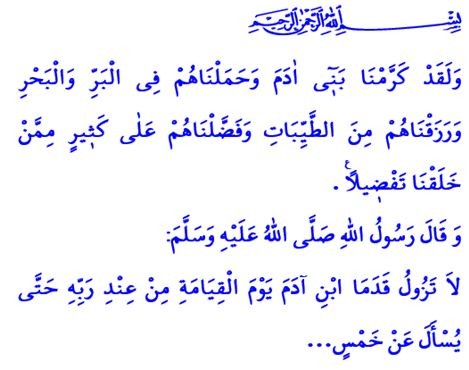 بِسْمِ اللهِ الرَّحْمٰنِ الرَّحِيمِ
وَلَقَدْ كَرَّمْنَا بَنٓي اٰدَمَ وَحَمَلْنَاهُمْ فِي الْبَرِّ وَالْبَحْرِ
وَرَزَقْنَاهُمْ مِنَ الطَّيِّبَاتِ وَفَضَّلْنَاهُمْ عَلٰى كَثيرٍ مِمَّنْ
خَلَقْنَا تَفْضيلاًۚ .
وَ قَالَ رَسُولُ اللهِ صَلَّى اللهُ عَلَيْهِ وَسَلَّمَ:
لاَ تَزُولُ قَدَمَا ابْنِ آدَمَ يَوْمَ الْقِيَامَةِ مِنْ عِنْدِ رَبِّهِ حَتَّى
يُسْأَلَ عَنْ خَمْسٍ...